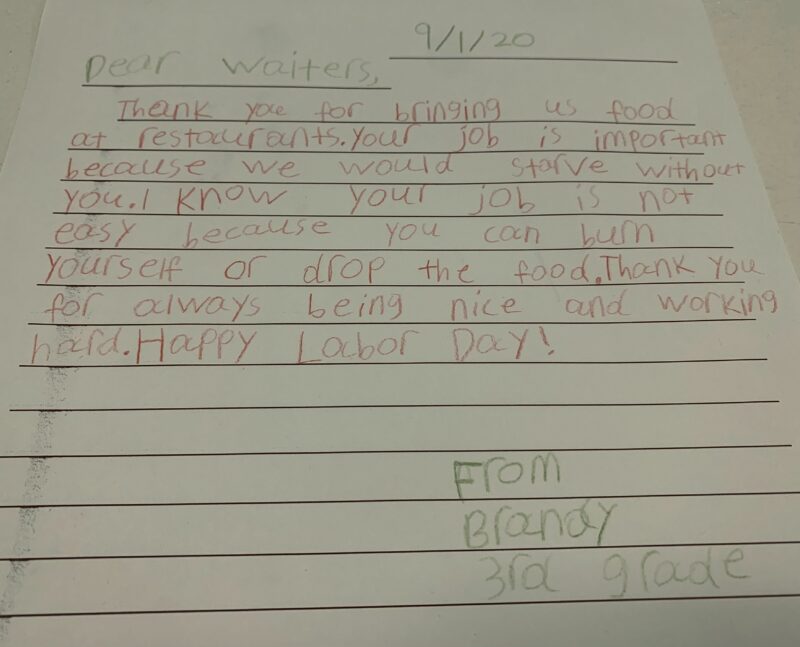 9/1/20
Dear Waiters,
Thank you for bringing us food
at restaurants.Your job is important
because we would starve without
you.I know your job is not
easy because you can burn
yourself or drop the food.Thank you
for always being nice and working
hard.Happy Labor Day!
From
Brandy
3rd grade